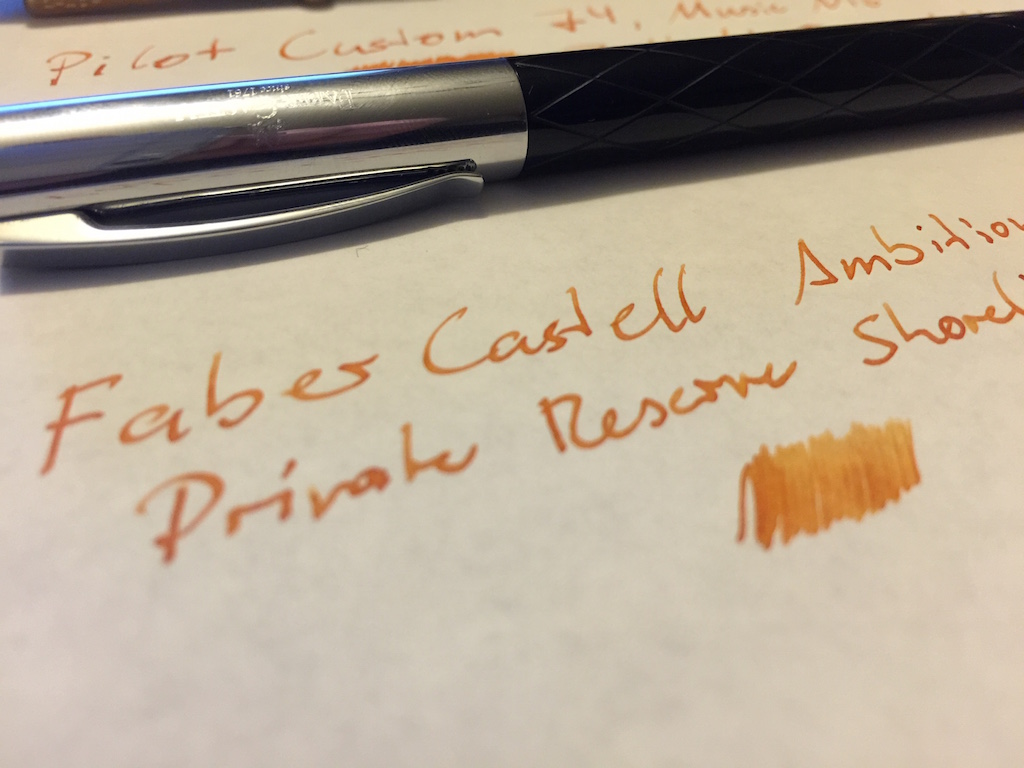 Pilot Custom 74, Music
since 1761
Faber Castell Ambition
Private Reserve Shorel